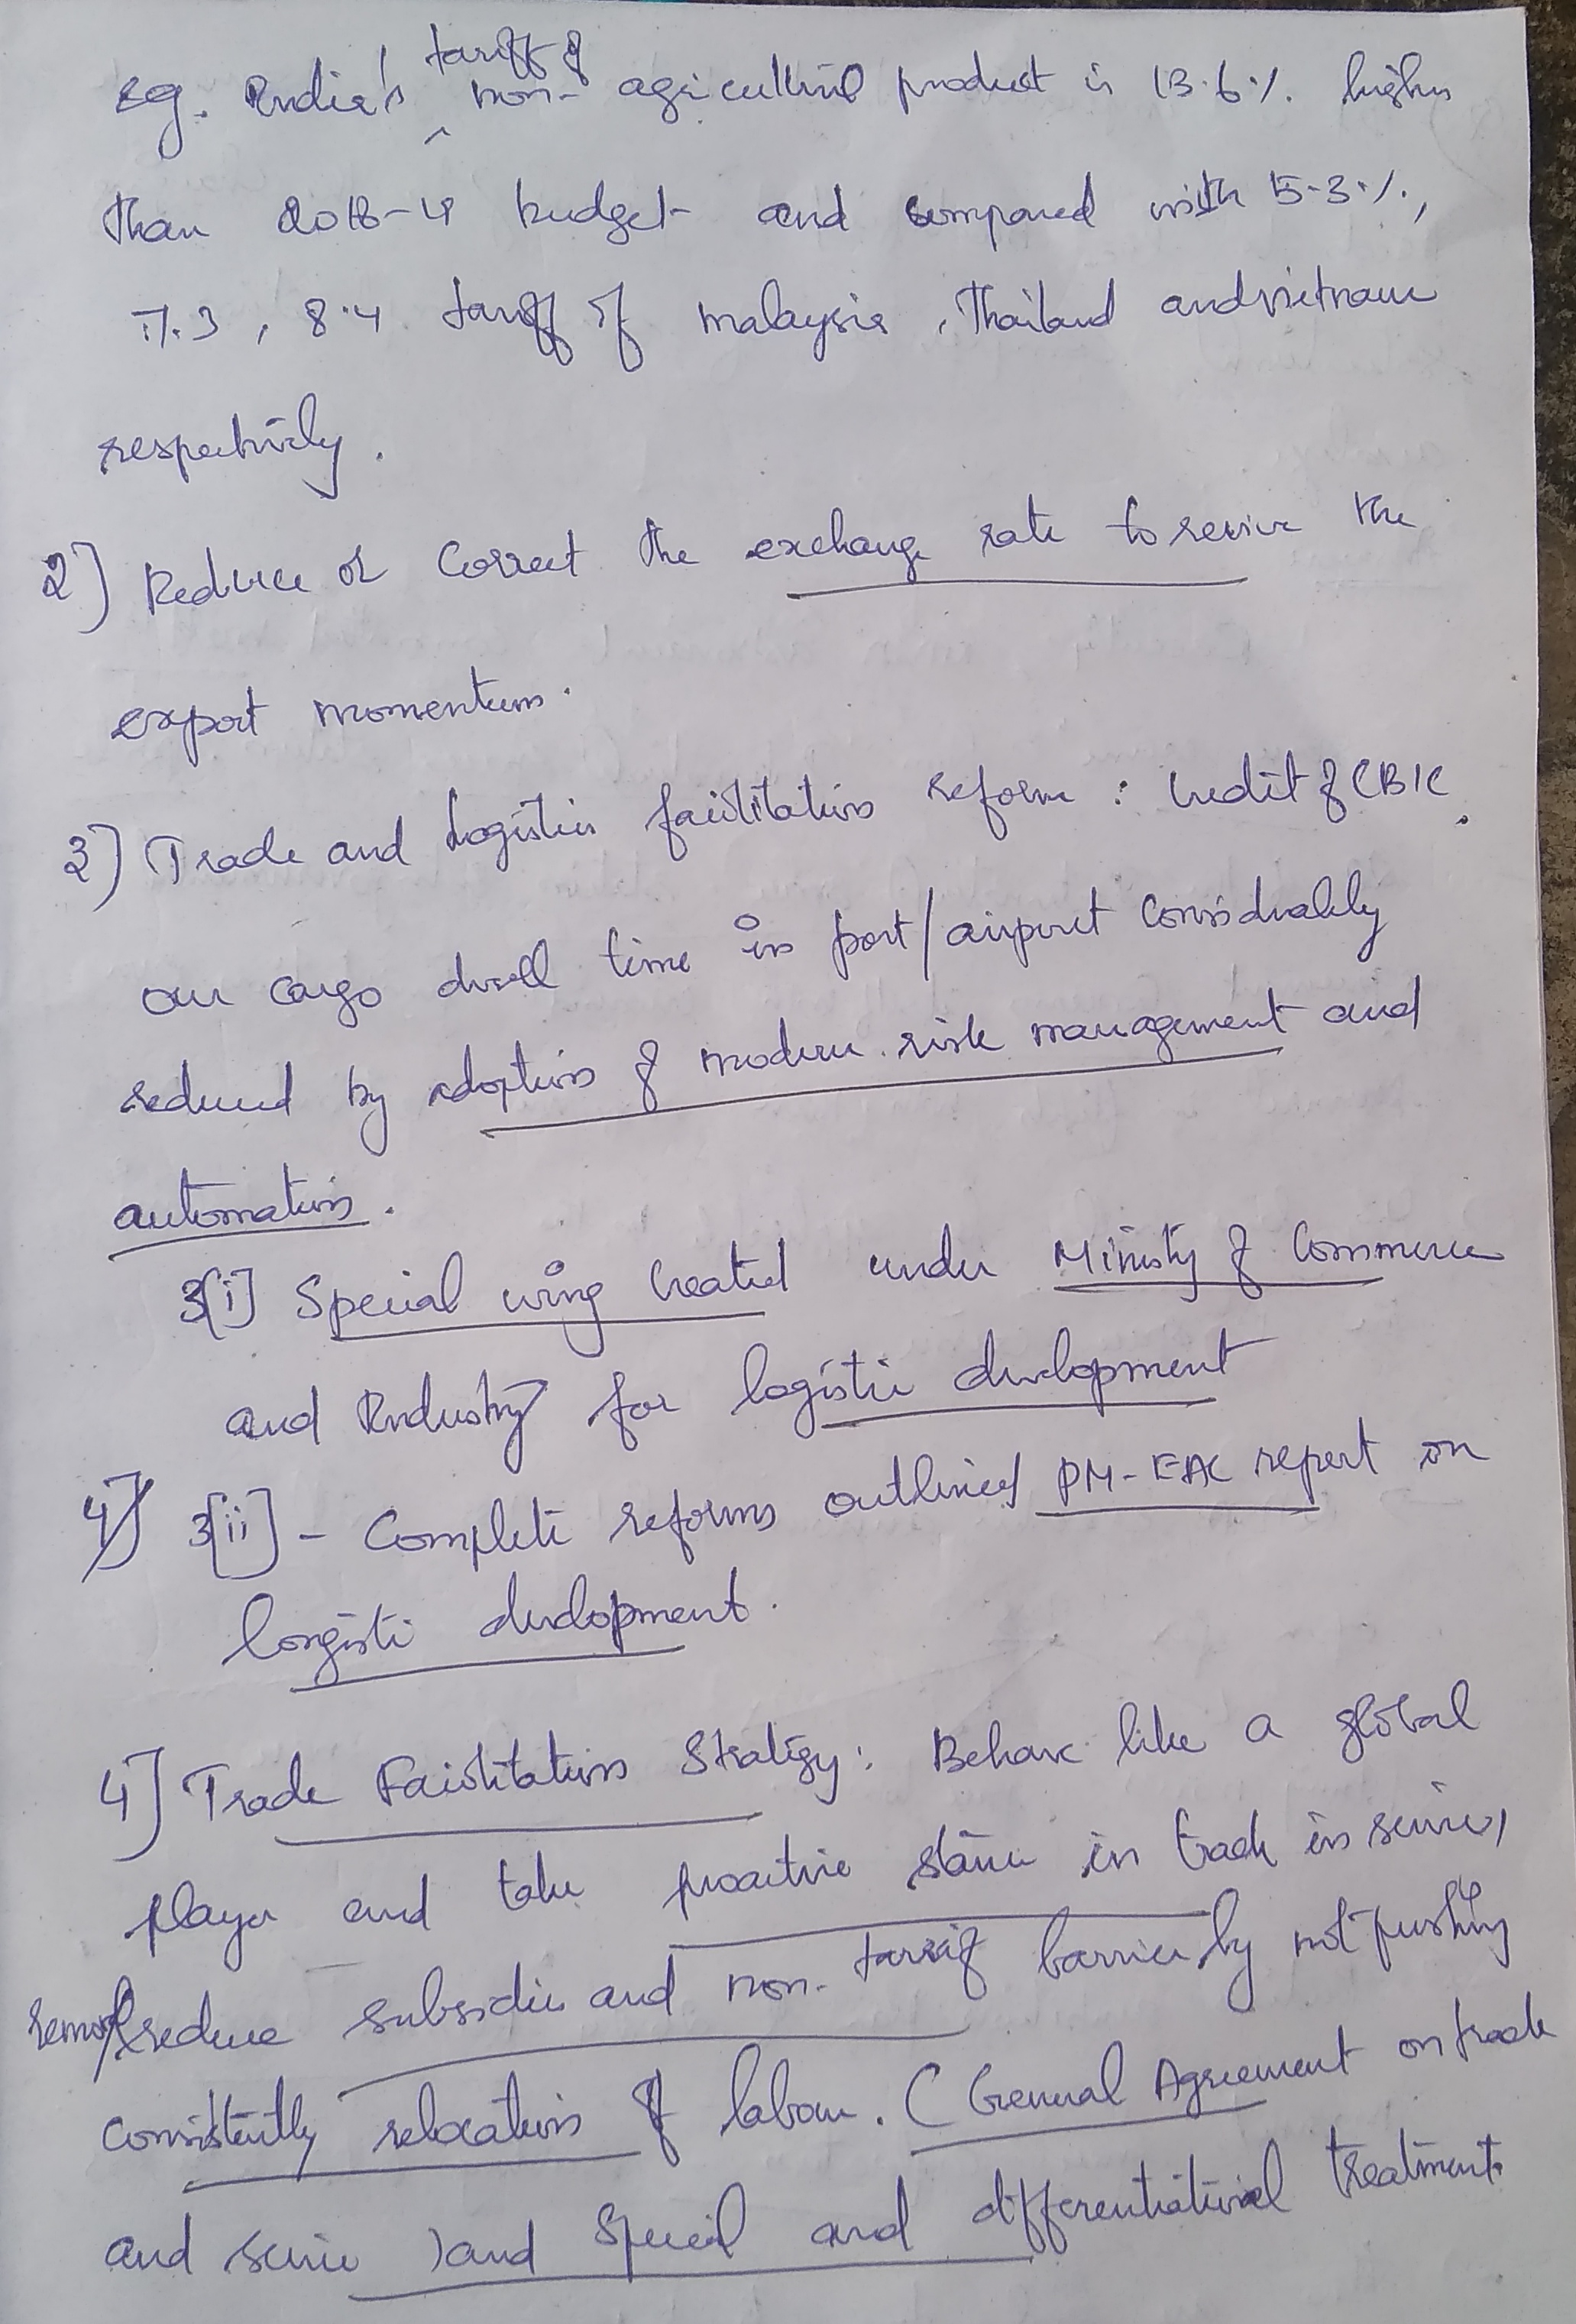 eg. India's tariff of non-agricultural product is 13.6%. higher
than 2018-19 budget and compared with 5.3%.,
7.3, 8.4 tariff of malaysia, Thailand and vietnam
respectively.
2] Reduce or Correct the exchange rate to revive the
export momentum.
3] Trade and Logistics facilitation reform : Credit of CBIC.
our cargo dwell time in port/airport Considerably
reduced by adoption of modern risk management and
automation.
3[i] Special wing Created under Ministry of Commerce
and Industry for logistic development
4] 3[ii] - Complete reforms outlined PM-EAC report on
longisti development.
4] Trade Facilitation Strategy: Behave like a global
player and take proactive stance in trade in service,
reduce subsidies and non-tarrif barrier by not pushing
Consistently relocation of labour. (General Agreement on trade
and service) and Special and differentiational treatment